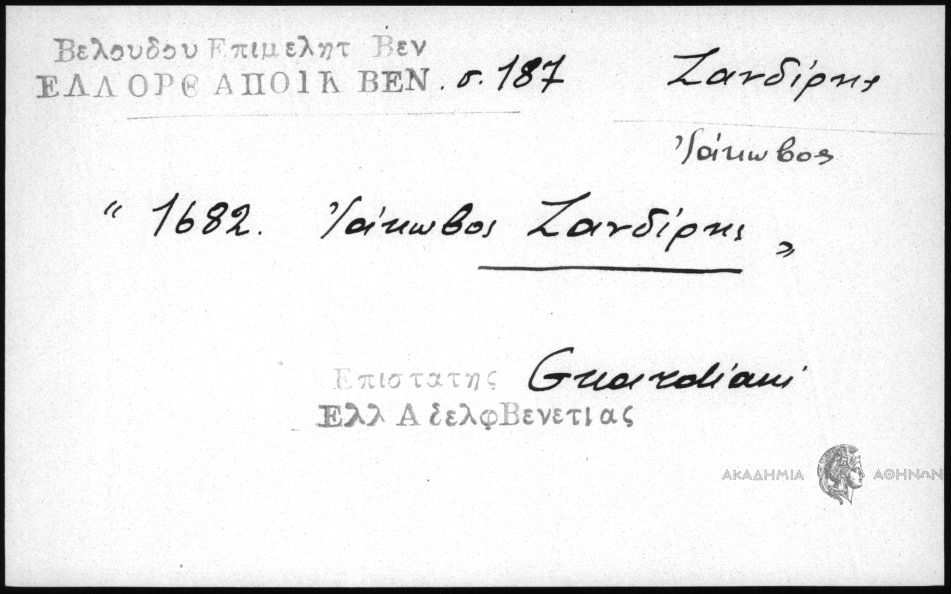 Βελουδου Επιμελητ Βεν
ΕΛΛ ΟΡΘ ΑΠΟΙΚ ΒΕΝ. σ. 187 Ζανδίρης
Ἰάκωβος
“ 1682. Ἰάκωβος Ζανδίρης „
Επιστατης Guardiani
Ελλ Αδελφ Βενετιας
ΑΚΑΔΗΜΙΑ ΑΘΗΝΩΝ